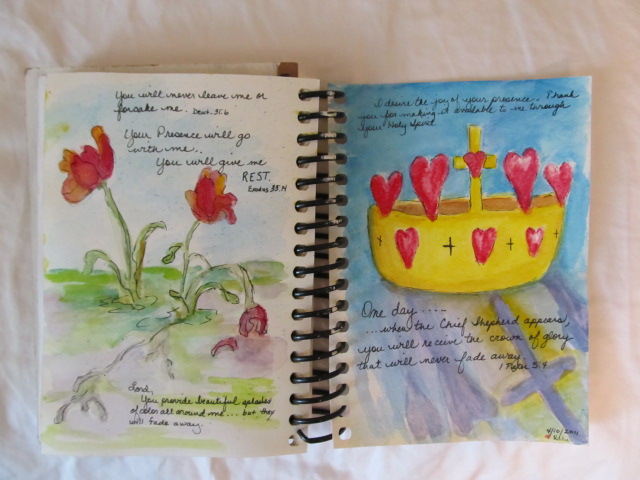 You will never leave me or
forsake me. Deut. 31:6
Your Presence will go
with me..
You will give me
REST.
Exodus 33:14
Lord,
You provide beautiful splashes
of color all around me... but they
will fade away.
I desire the joy of your presence.. Thank
you for making it available to me through
your Holy Spirit.
One day.....
...when the Chief Shepherd appears,
you will receive the crown of glory
that will never fade away.
1 Peter 5:4
4/10/2011